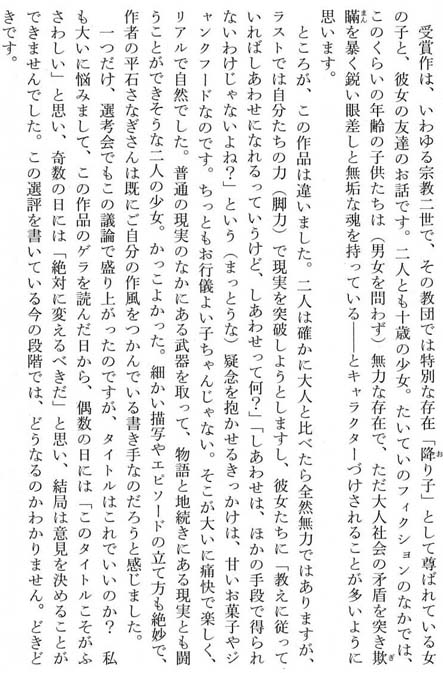 受賞作は、いわゆる宗教二世で、その教団では特別な存在「降り子」として尊ばれている女
の子と、彼女の友達のお話です。二人とも十歳の少女。たいていのフィクションのなかでは、
このくらいの年齢の子供たちは（男女を問わず）無力な存在で、ただ大人社会の矛盾を突き欺
瞞を暴く鋭い眼差しと無垢な魂を持っている――とキャラクターづけされることが多いように
思います。
　ところが、この作品は違いました。二人は確かに大人と比べたら全然無力ではありますが、
ラストでは自分たちの力（脚力）で現実を突破しようとしますし、彼女たちに「教えに従って
いればしあわせになれるっていうけど、しあわせって何？」「しあわせは、ほかの手段で得られ
ないわけじゃないよね？」という（まっとうな）疑念を抱かせるきっかけは、甘いお菓子やジ
ャンクフードなのです。ちっともお行儀よい子ちゃんじゃない。そこが大いに痛快で楽しく、
リアルで自然でした。普通の現実のなかにある武器を取って、物語と地続きにある現実とも闘
うことができそうな二人の少女。かっこよかった。細かい描写やエピソードの立て方も絶妙で、
作者の平石さなぎさんは既にご自分の作風をつかんでいる書き手なのだろうと感じました。
　一つだけ、選考会でもこの議論で盛り上がったのですが、タイトルはこれでいいのか？　私
も大いに悩みまして、この作品のゲラを読んだ日から、偶数の日には「このタイトルこそがふ
さわしい」と思い、奇数の日には「絶対に変えるべきだ」と思い、結局は意見を決めることが
できませんでした。この選評を書いている今の段階では、どうなるのかわかりません。どきど
きです。